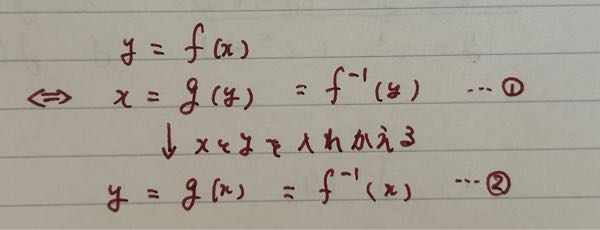 y = f(x)
⇔ x = g(y) = f⁻¹(y) …①
↓ xとyを入れかえる
y = g(x) = f⁻¹(x) …②